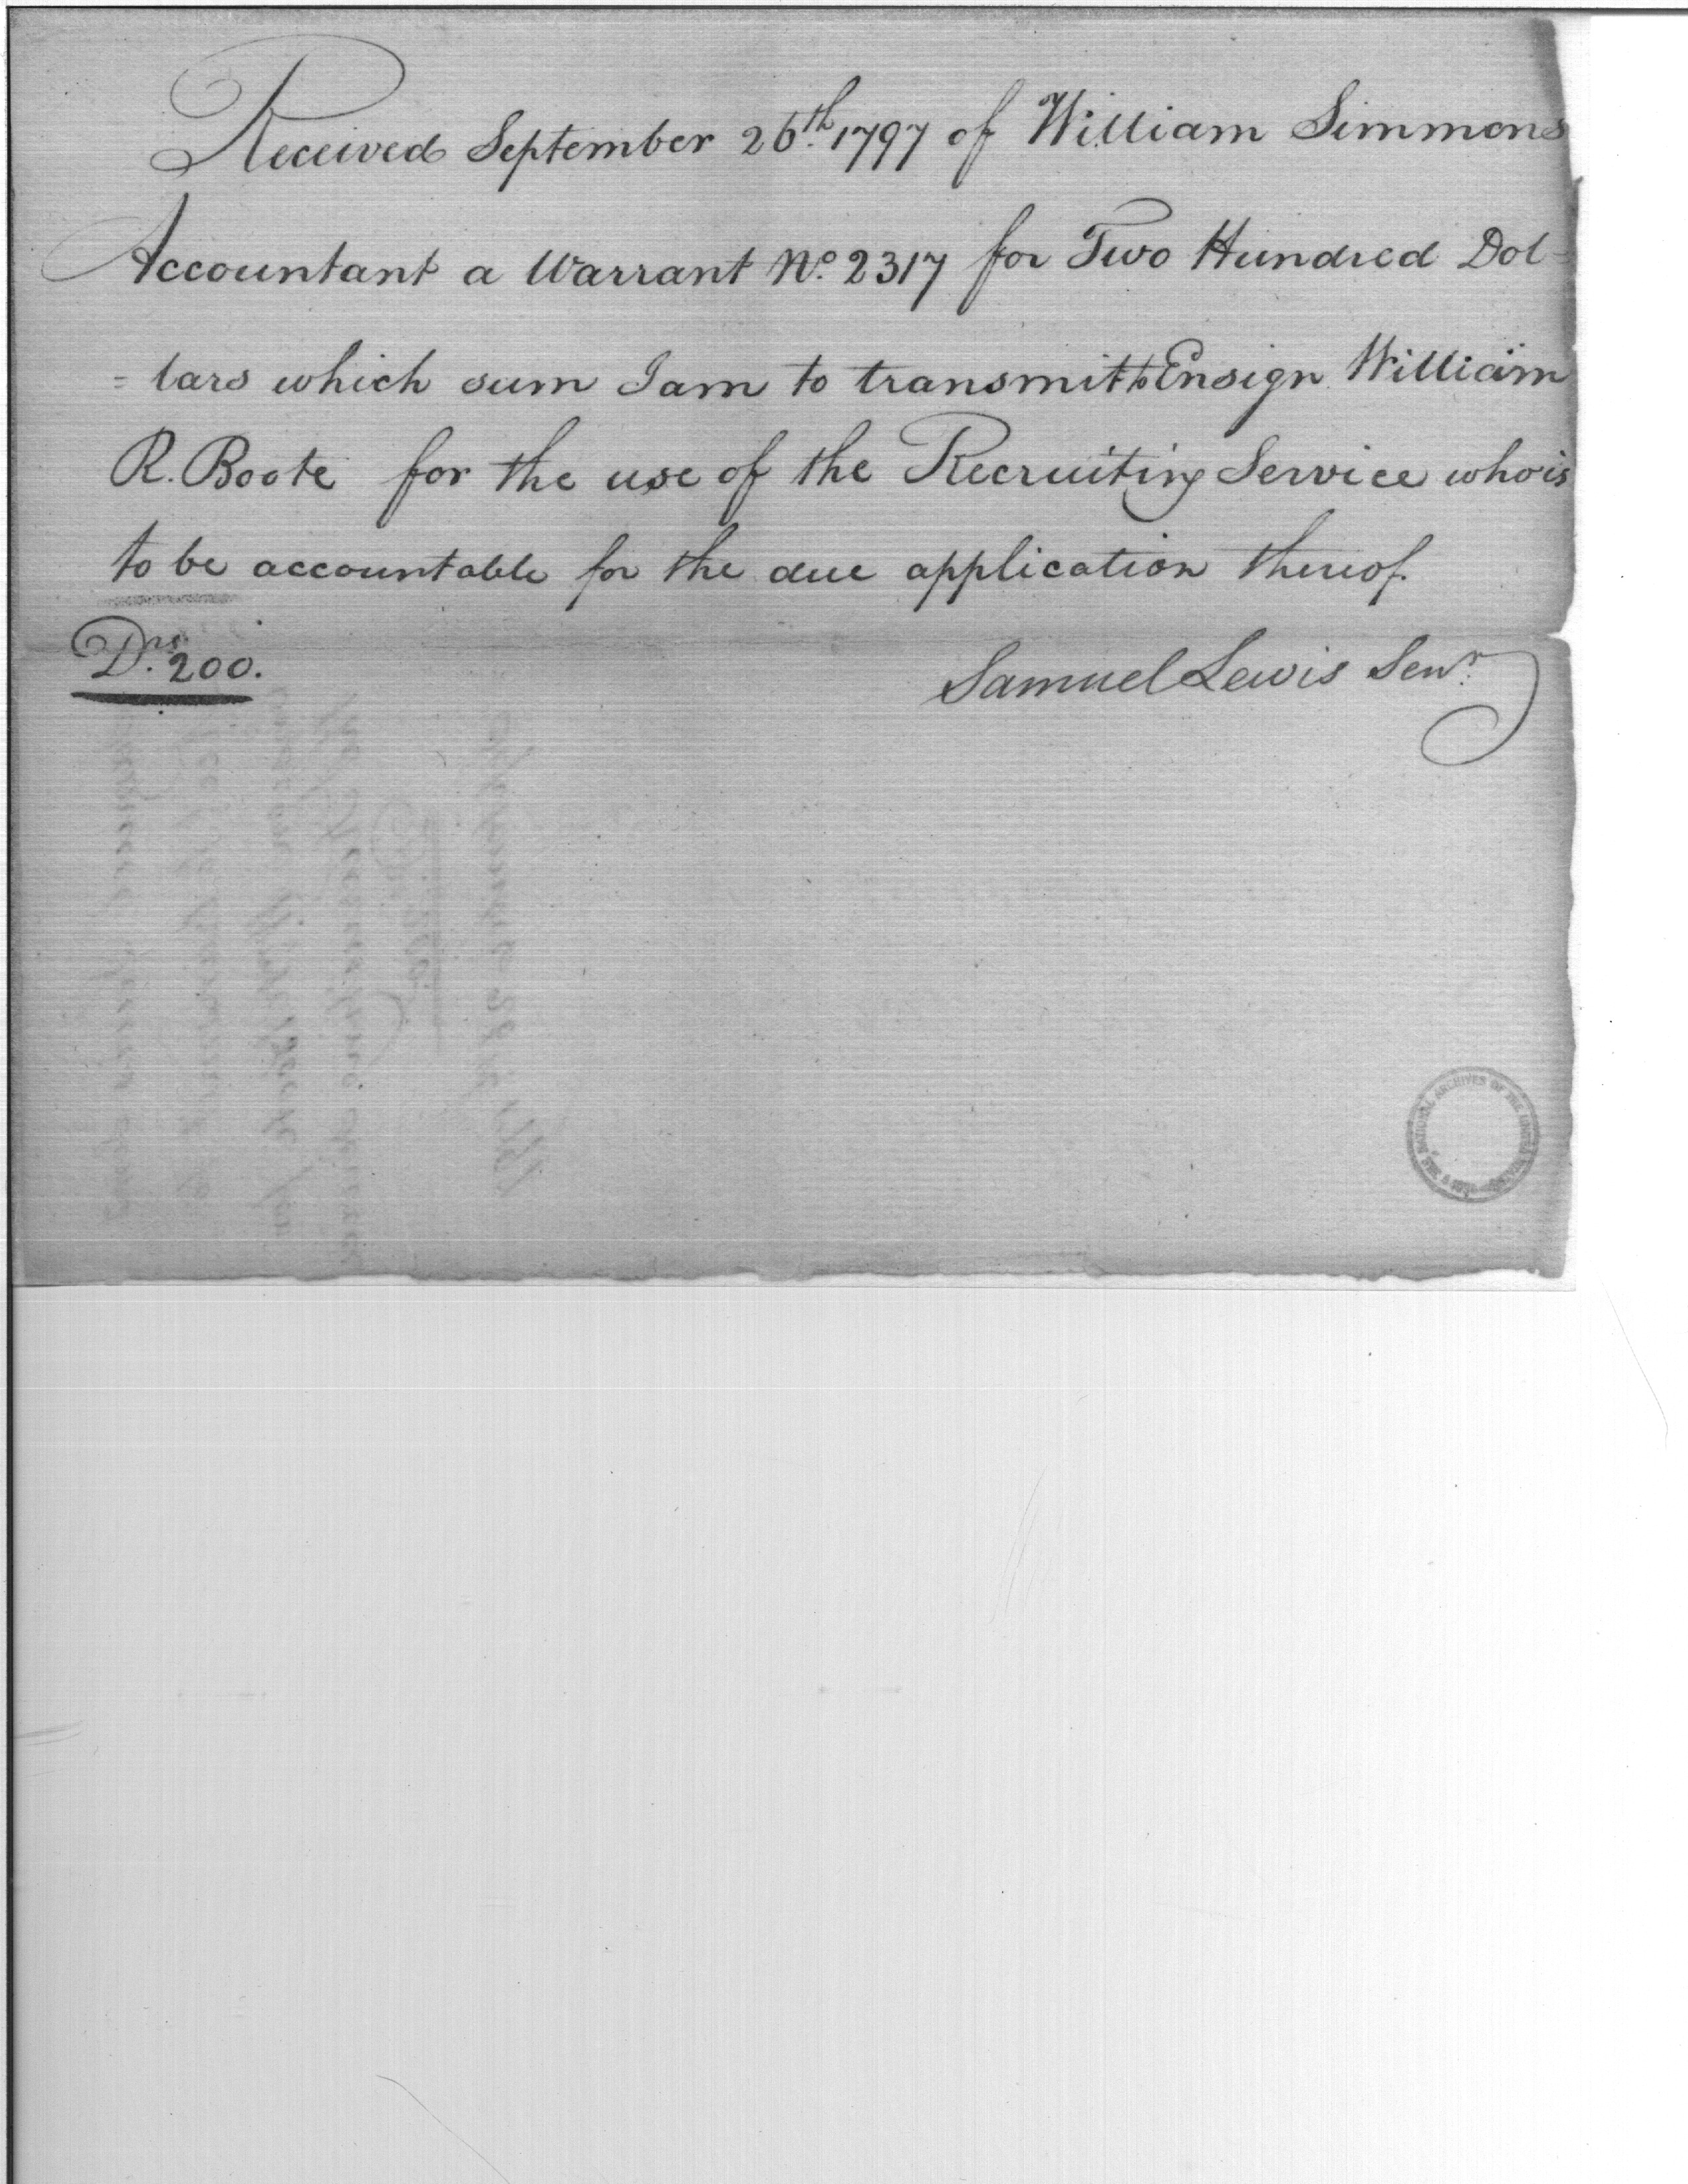 Received September 26th. 1797 of William Simmons
Accountant a Warrant No. 2317 for Two Hundred Dol=
=lars which sum I am to transmit to Ensign William
R. Boote for the use of the Recruiting Service who is
to be accountable for the due application thereof.
Drs. 200.
Samuel Lewis Senr.
THE NATIONAL ARCHIVES OF THE UNITED STATES